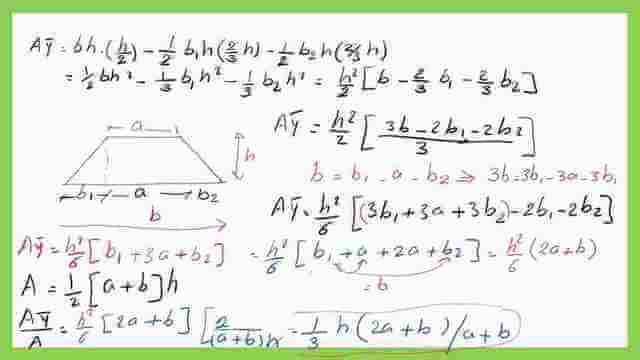 Aȳ = bh·(h/2) - 1/2 b₁h(2/3 h) - 1/2 b₂h(2/3 h)
= 1/2 bh² - 1/3 b₁h² - 1/3 b₂h² = h²/2 [b - 2/3 b₁ - 2/3 b₂]
Aȳ = h²/2 [3b - 2b₁ - 2b₂ / 3]
a
h
b₁ a b₂
b
b = b₁ - a - b₂ ⇒ 3b = 3b₁ - 3a - 3b₁
Aȳ = h²/6 [(3b₁ + 3a + 3b₂) - 2b₁ - 2b₂]
Aȳ = h²/6 [b₁ + 3a + b₂] = h²/6 [b₁ + a + 2a + b₂] = h²/6 (2a + b)
= b
A = 1/2 [a + b] h
Aȳ/A = h²/6 [2a + b] [2/(a + b)h = 1/3 h (2a + b)/a + b